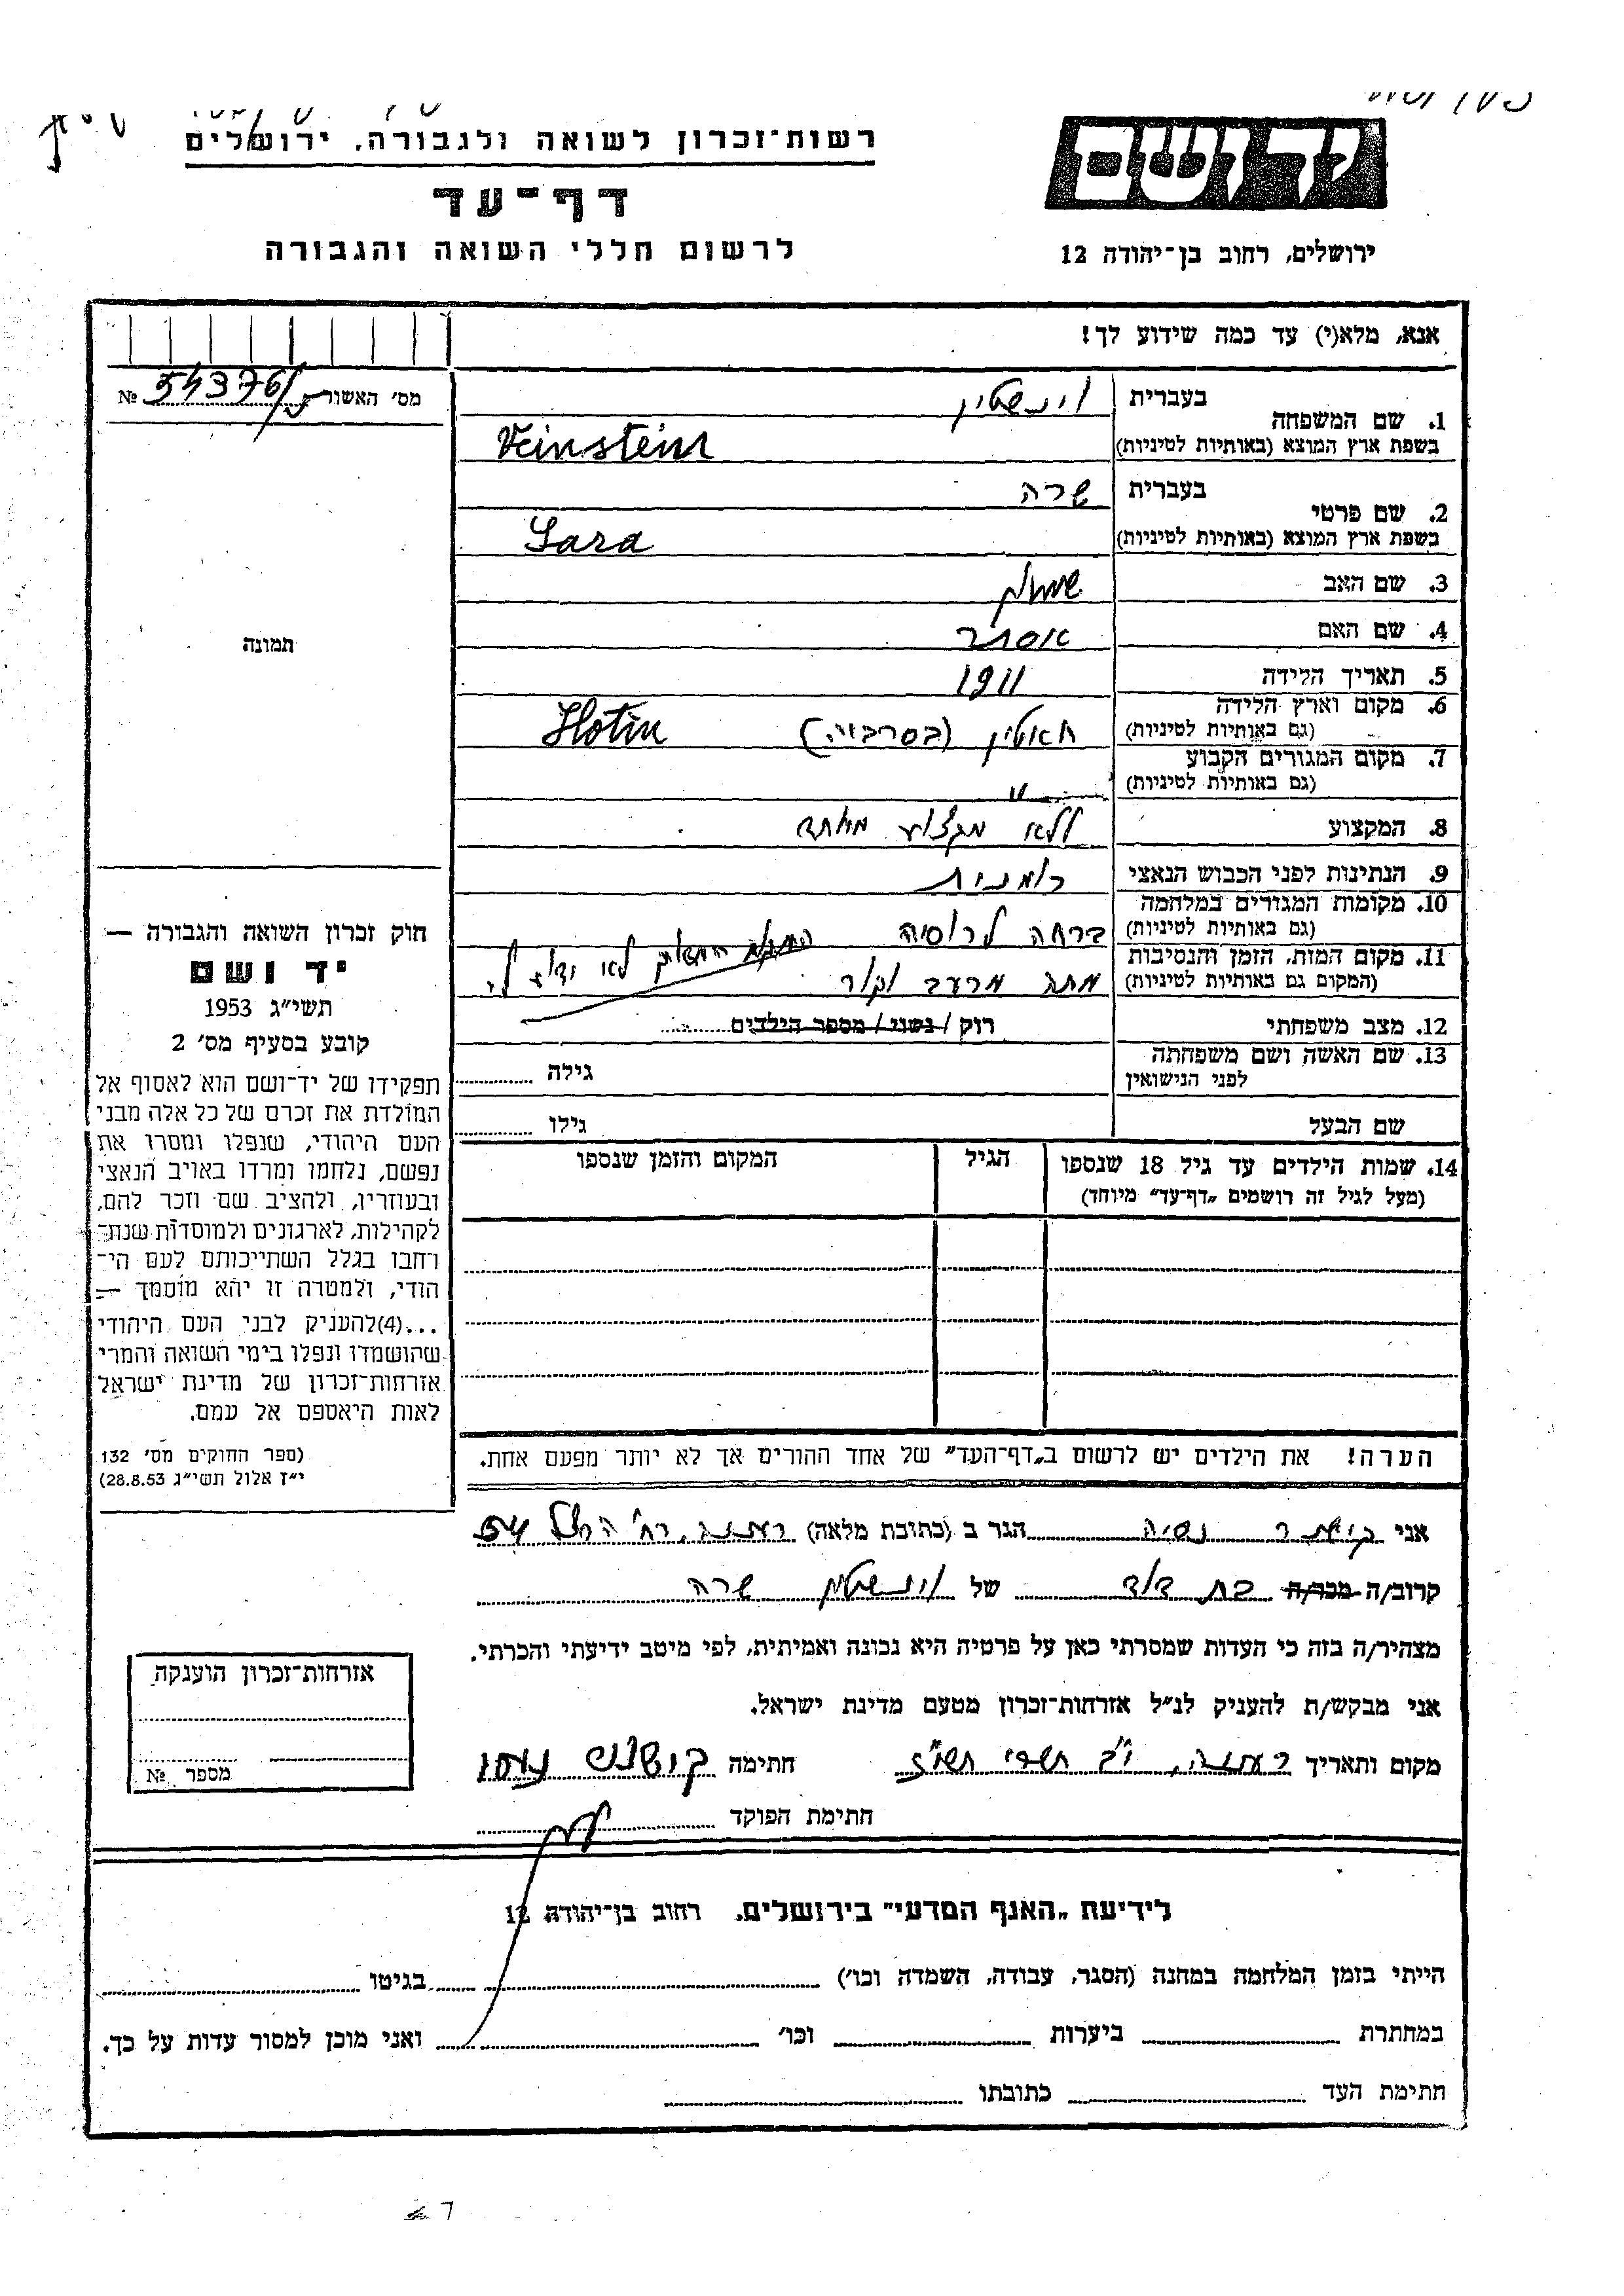 רשות־זכרון לשואה ולגבורה, ירושלים
יד ושם
דף־עד
לרשום חללי השואה והגבורה
ירושלים, רחוב בן־יהודה 12
אנא, מלא(י) עד כמה שידוע לך!
מס׳ האשור № 54376/
1. שם המשפחה בעברית וינשטין
בשפת ארץ המוצא (באותיות לטיניות) Veinstein
2. שם פרטי בעברית שרה
בשפת ארץ המוצא (באותיות לטיניות) Sara
3. שם האב
4. שם האם אסתר
5. תאריך הלידה 1911
6. מקום וארץ הלידה (גם באותיות לטיניות) חאטין (בסרביה) Hotin
7. מקום המגורים הקבוע (גם באותיות לטיניות) — " —
8. המקצוע ללא מקצוע מיוחד
9. הנתינות לפני הכבוש הנאצי רומנית
10. מקומות המגורים במלחמה (גם באותיות לטיניות) ברחה לרוסיה
11. מקום המות, הזמן והנסיבות (המקום גם באותיות לטיניות) מתה מרעב וקור לא ידוע לי
12. מצב משפחתי רוק / נשוי / מספר הילדים
13. שם האשה ושם משפחתה לפני הנישואין גילה
שם הבעל גילו
14. שמות הילדים עד גיל 18 שנספו (מעל לגיל זה רושמים „דף־עד" מיוחד) הגיל המקום והזמן שנספו
הערה! את הילדים יש לרשום ב„דף־העד" של אחד ההורים אך לא יותר מפעם אחת.
תמונה
חוק זכרון השואה והגבורה —
יד ושם
תשי״ג 1953
קובע בסעיף מס׳ 2
תפקידו של יד־ושם הוא לאסוף אל
המולדת את זכרם של כל אלה מבני
העם היהודי, שנפלו ומסרו את
נפשם, נלחמו ומרדו באויב הנאצי
ובעוזריו, ולהציב שם וזכר להם,
לקהילות, לארגונים ולמוסדות שנח־
רחבו בגלל השתייכותם לעם הי־
הודי, ולמטרה זו יהא מוסמך —
...(4)להעניק לבני העם היהודי
שהושמדו ונפלו בימי השואה והמרי
אזרחות־זכרון של מדינת ישראל
לאות היאספם אל עמם.
(ספר החוקים מס׳ 132
י״ז אלול תשי״ג 28.8.53)
אני נסיה הגר ב (כתובת מלאה) רעננה, רח׳ 54
קרוב/ה מכר/ה בת דוד של וינשטין שרה
מצהיר/ה בזה כי העדות שמסרתי כאן על פרטיה היא נכונה ואמיתית, לפי מיטב ידיעתי והכרתי.
אני מבקש/ת להעניק לנ״ל אזרחות־זכרון מטעם מדינת ישראל.
מקום ותאריך רעננה, י״ב תשרי תשי״ז חתימה
חתימת הפוקד
אזרחות־זכרון הוענקה
מספר №
לידיעת „האנף המדעי" בירושלים, רחוב בן־יהודה 12
הייתי בזמן המלחמה במחנה (הסגר, עבודה, השמדה וכו׳) בגיטו
במחתרת ביערות וכו׳ ואני מוכן למסור עדות על כך.
חתימת העד כתובתו